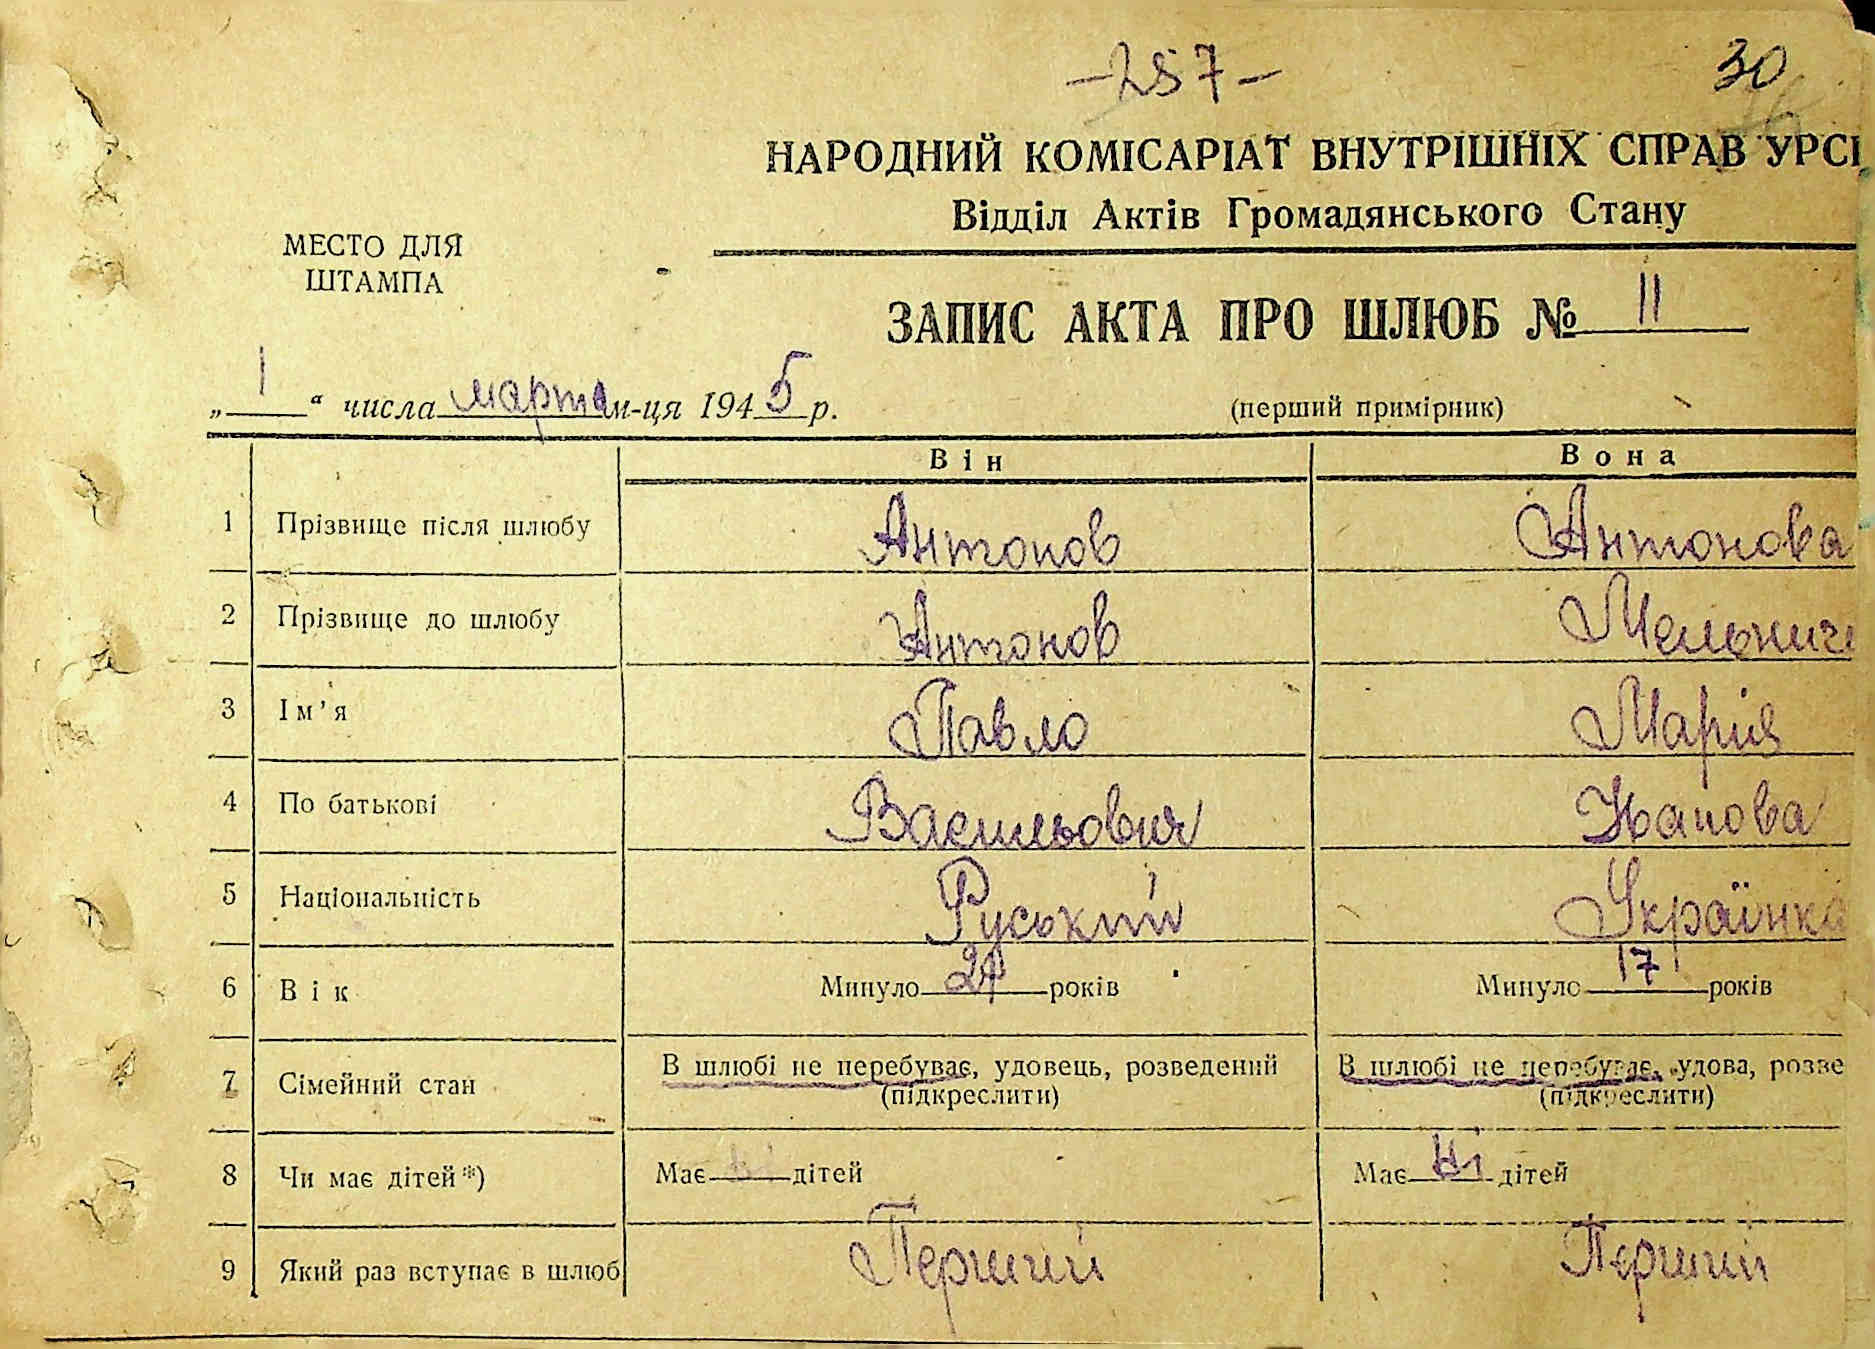 -257-
30
НАРОДНИЙ КОМІСАРІАТ ВНУТРІШНІХ СПРАВ УРСР
Відділ Актів Громадянського Стану
МЕСТО ДЛЯ
ШТАМПА
ЗАПИС АКТА ПРО ШЛЮБ № 11
„ 1 “ числа марта м-ця 1945 р.
(перший примірник)
Він Вона
1 Прізвище після шлюбу Антонов Антонова
2 Прізвище до шлюбу Антонов Мельниче
3 Ім'я Павло Марія
4 По батькові Васильович
5 Національність Руський Українка
6 Вік Минуло років Минуло 17 років
7 Сімейний стан В шлюбі не перебуває, удовець, розведений В шлюбі не перебуває, удова, розве
(підкреслити) (підкреслити)
8 Чи має дітей*) Має ні дітей Має ні дітей
9 Який раз вступає в шлюб Перший Перший